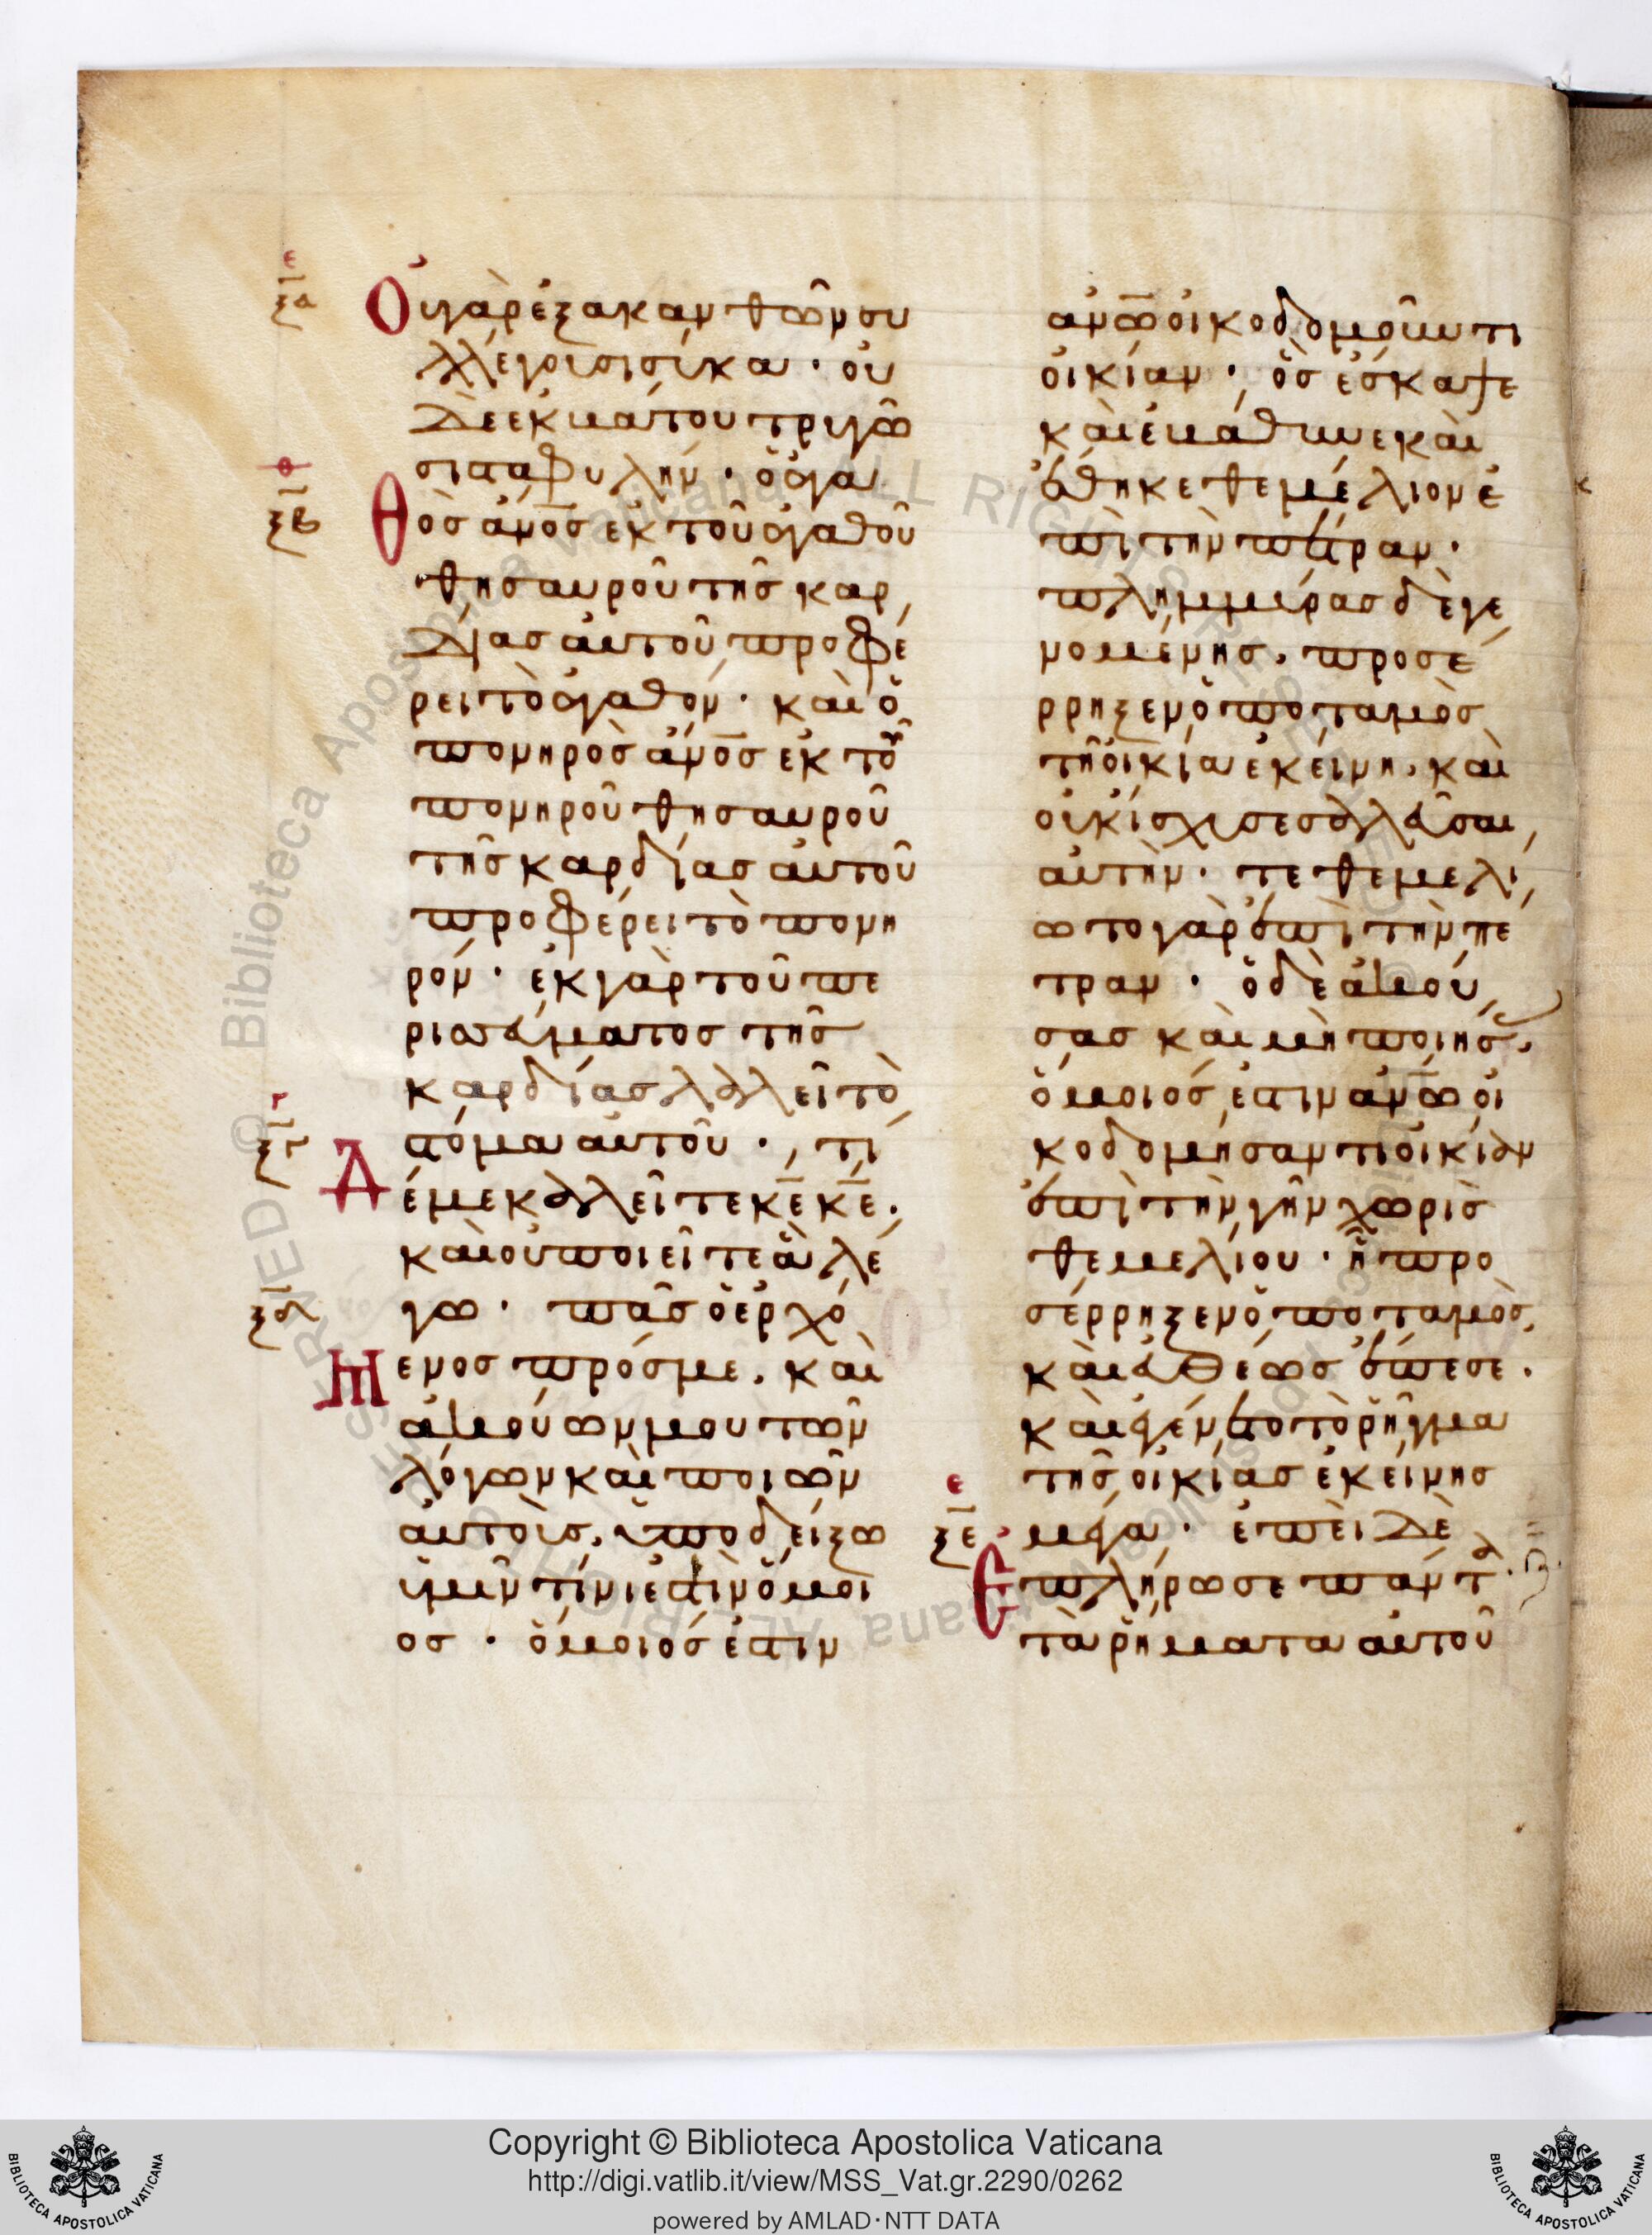 ε
ξα
Οὐ γὰρ ἐξ ακανθῶν συ
λλέγουσι σύκα · οὐ
δὲ ἐκ βάτου τρυγῶ
σι σταφυλήν · ὁ ἀγα
ι
ξβ
Θὸς ἄνο̅ς ἐκ τοῦ ἀγαθοῦ
θησαυροῦ τῆς καρ
δίας αὐτοῦ προφέ
ρει τὸ ἀγαθόν · καὶ ὁ
πονηρὸς ἄνο̅ς ἐκ τοῦ
πονηροῦ θησαυροῦ
τῆς καρδίας αὐτοῦ
προφέρει τὸ πονη
ρόν · ἐκ γὰρ τοῦ πε
ρισσεύματος τῆς
καρδίας λαλεῖ τὸ
στόμα αὐτοῦ · τί
γ
ξγ
Δέ με καλεῖτε κ̅ε κ̅ε.
καὶ οὐ ποιεῖτε ἃ λέ
ξδ
γω · πᾶς ὁ ἐρχό
Μενος πρός με. καὶ
ἀκούων μου τῶν
λόγων καὶ ποιῶν
αὐτοὺς, ὑποδείξω
ὑμῖν τίνι ἐστὶν ὅμοι
ος · ὅμοιός ἐστιν
ἀνω̅ οἰκοδομοῦντι
οἰκίαν · ὃς ἔσκαψε
καὶ ἐβάθυνε καὶ
ἔθηκε θεμέλιον ἐ
πὶ τὴν πέτραν ·
πλημμύρας δὲ γε
νομένης. προσέ
ρρηξεν ὁ ποταμὸς
τῆ οἰκία ἐκείνη. καὶ
οὐκ ἴσχυσε σαλεῦσαι
αὐτὴν · τεθεμελί
ωτο γὰρ ἐπὶ τὴν πέ
τραν · ὁ δὲ ἀκού
σας καὶ μὴ ποιήσας.
ὅμοιός ἐστιν ἀνω̅ οἰ
κοδομήσαντι οἰκίαν
ἐπὶ τὴν γῆν χωρὶς
θεμελίου · ἧ προ
σέρρηξεν ὁ ποταμὸς,
καὶ εὐθέως ἔπεσε.
καὶ ἐγένετο τὸ ρῆγμα
τῆς οἰκίας ἐκείνης
ε
ξε
μέγα · ἐπεὶ δὲ
Ἐπλήρωσε πάντα
τὰ ρήματα αὐτοῦ
© Biblioteca Apostolica Vaticana ALL RIGHTS RESERVED
Copyright © Biblioteca Apostolica Vaticana
http://digi.vatlib.it/view/MSS_Vat.gr.2290/0262
powered by AMLAD·NTT DATA
BIBLIOTECA APOSTOLICA VATICANA
BIBLIOTECA APOSTOLICA VATICANA